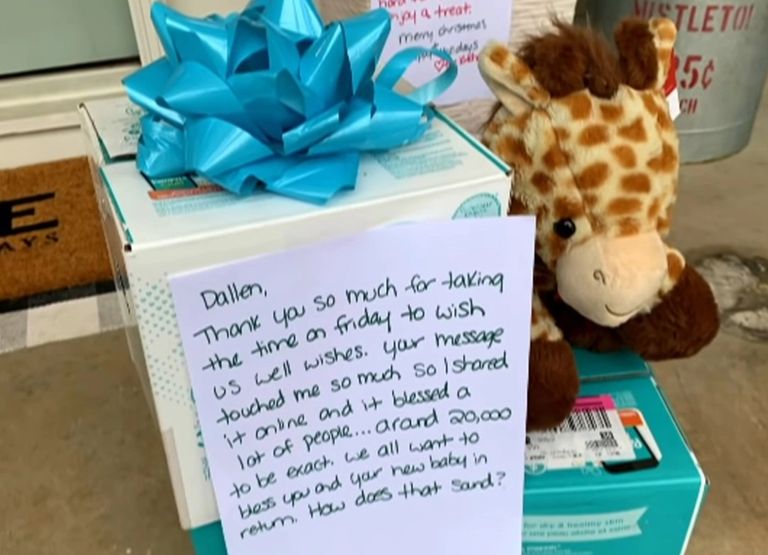 enjoy a treat.
merry christmas
MISTLETOE
5¢
E
AYS
Dallen,
Thank you so much for taking
the time on friday to wish
us well wishes. your message
touched me so much so I shared
it online and it blessed a
lot of people... around 20,000
to be exact. we all want to
bless you and your new baby in
return. How does that sound?
for dry & healthy skin